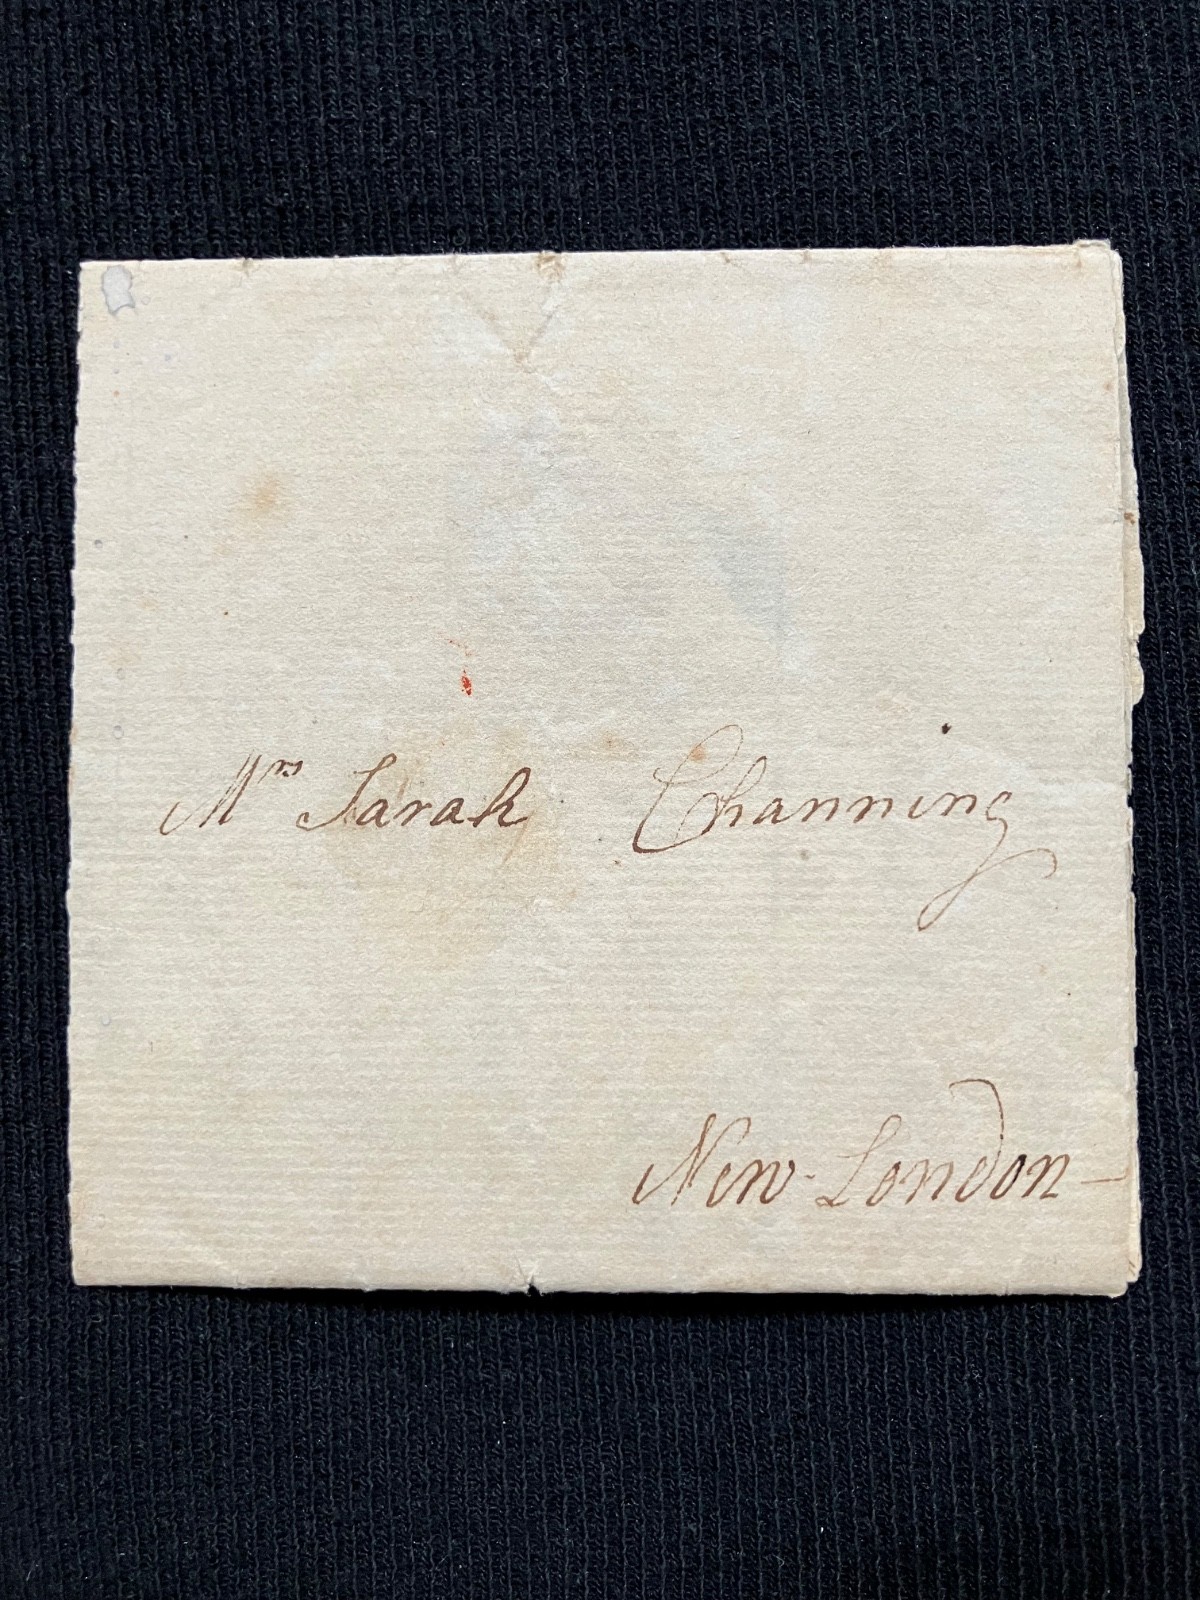 Mrs Sarah Channing
New-London-